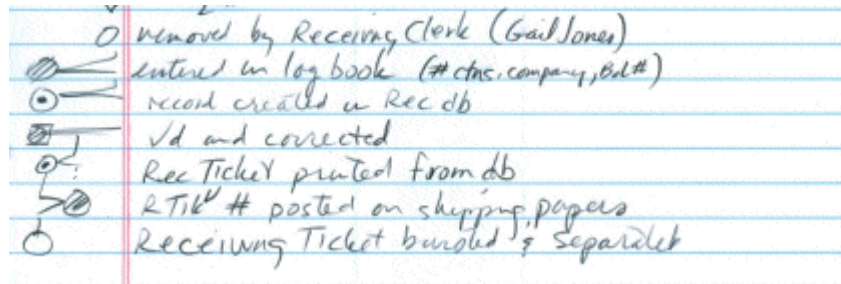 removed by Receiving Clerk (Gail Jones)
entered in log book (# ctns, company, Bol #)
record created in Rec db
√d and corrected
Rec Ticket printed from db
RTik # posted on shipping papers
Receiving Ticket bursted & separated